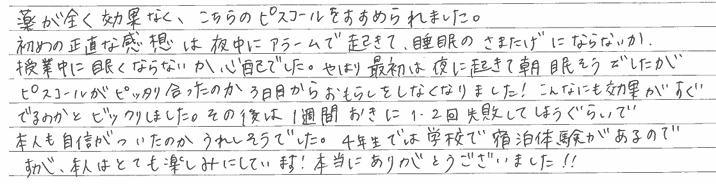 薬が全く効果なく、こちらのピスコールをすすめられました。
初めの正直な感想は夜中にアラームで起きて、睡眠のさまたげにならないか、
授業中に眠くならないか、心配でした。やはり最初は夜に起きて朝眠そうでしたが
ピスコールがピッタリ合ったのか3日目からおもらしをしなくなりました！こんなにも効果がすぐ
でるのかとビックリしました。その後は1週間おきに1・2回失敗してしまうぐらいで
本人も自信がついたのかうれしそうでした。4年生では学校で宿泊体験があるので
すが、本人はとても楽しみにしています！本当にありがとうございました！！